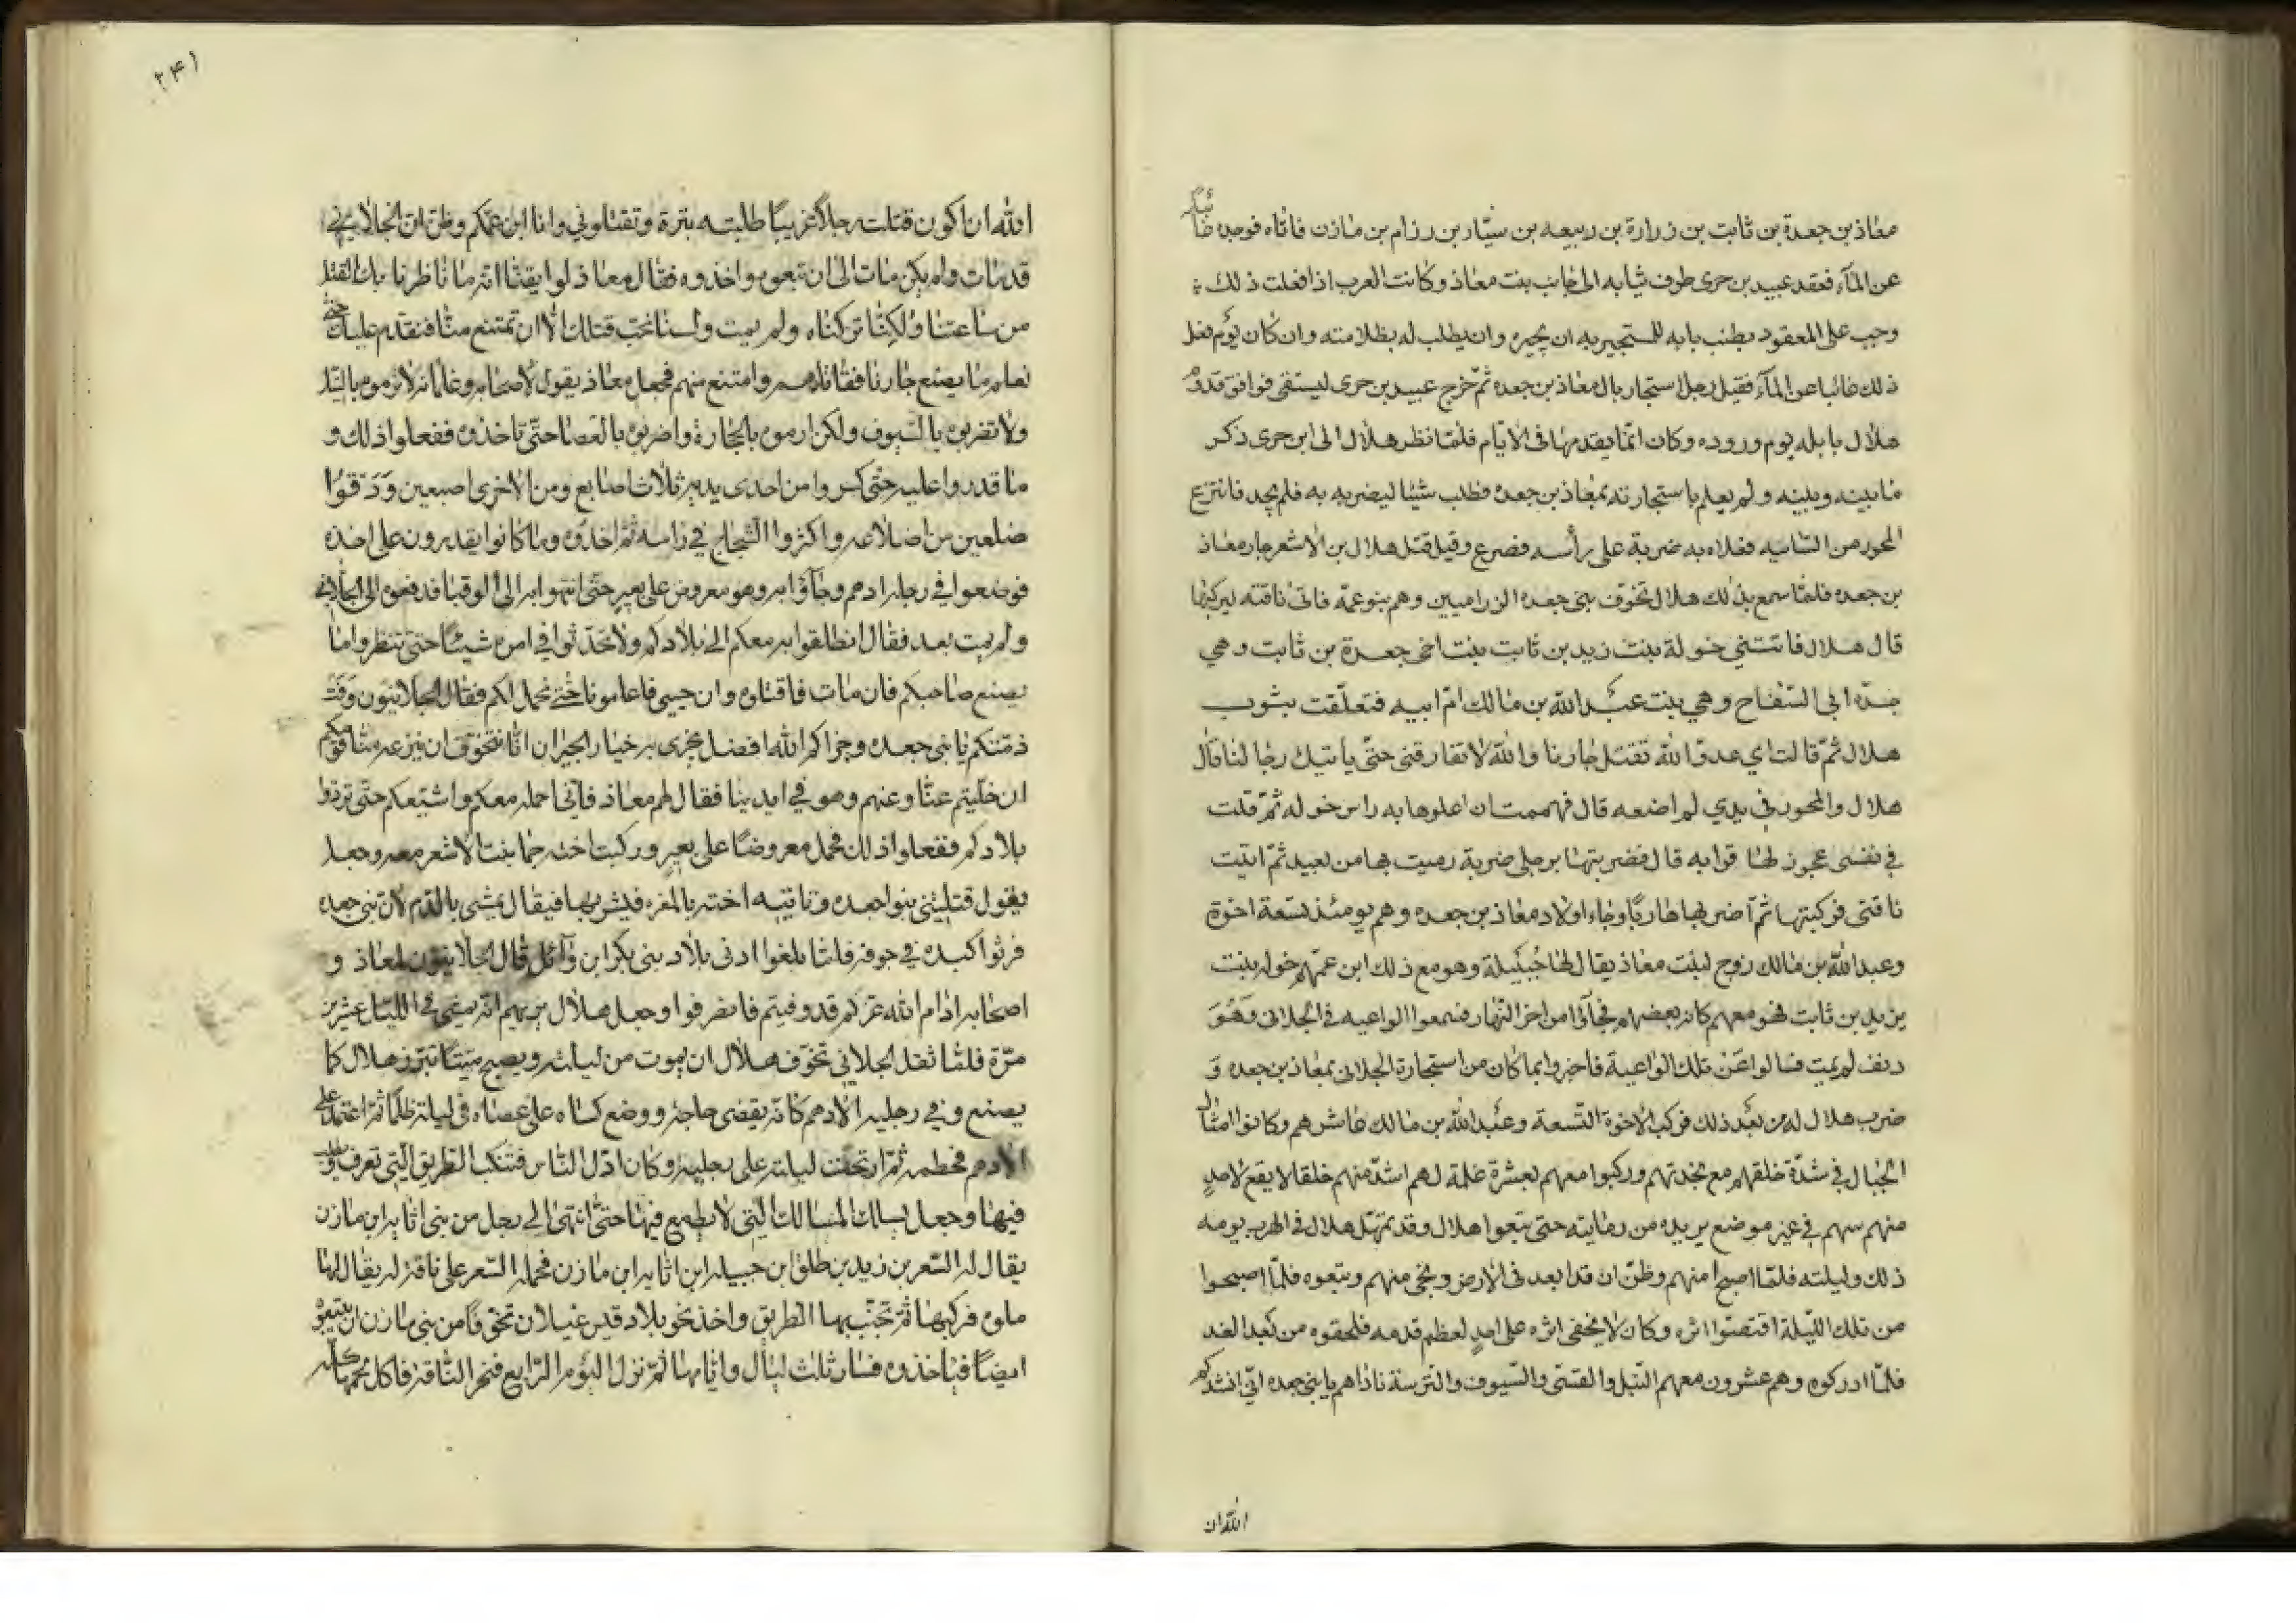 معاذ بن جعدة بن ثابت بن زرارة بن ربيعه بن سيّار بن رزام بن مازن فاتاه فوجده غائبا
عن المآء فعقد عبيد بن جرى طرف ثيابه الى جانب بنت معاذ وكانت العرب اذا فعلت ذلك
وجب على المعقود بطنب بابه للمستجير به ان يجيره وان يطلب له بظلامته وان كان يوم فعل
ذلك غائبا عن المآء فقيل رجل استجار بال معاذ بن جعده ثمّ خرج عبيد بن جرى ليستقى فوافق قدوم
هلال بابله يوم وروده وكان انّما يقدمها فى الايّام فلمّا نظر هلال الى ابن جرى ذكر
ما بينه وبينه ولم يعلم باستجارته بمعاذ بن جعده فطلب شيئا ليضربه به فلم يجد فانتزع
المحور من السانيه فعلاه به ضربة على رأسه فصرع وقيل قتل هلال بن الاشعر جار معاذ
بن جعده فلمّا سمع بذلك هلال تخوّف بنى جعده الزراميين وهم بنو عمّه فاتى ناقته ليركبها
قال هلال فاتتني خولة بنت زيد بن ثابت بنت اخى جعدة بن ثابت وهي
جدّه ابى السّفاح وهي بنت عبد الله بن مالك امّ ابيه فتعلّقت بثوب
هلال ثمّ قالت اي عدوّ الله تقتل جارنا والله لا تفارقنى حتّى يأتيك رجالنا قال
هلال والمحور في يدي لم اضعه قال فهممت ان اعلوها به راس خوله ثمّ قلت
في نفسى عجوز لها قرابه قال فضربتها برجلى ضربة رميت بها من بعيد ثمّ اتيت
ناقتى فركبتها ثمّ اضربها هاربًا وجاء اولاد معاذ بن جعده وهم يومئذ تسعة اخوة
وعبد الله بن مالك زوج لبنت معاذ يقال لها جُبَيلة وهو مع ذلك ابن عمّتهم خوله بنت
يزيد بن ثابت فهو معهم كانه بعضهم فجآؤا من اخر النّهار فسمعوا الواعيه فى الجلانى وَهُوَ
دنف لم يمت فسالوا عَنْ تلك الواعية فاخبروا بما كان من استجارة الجلانى بمعاذ بن جعده وَ
ضرب هلال له من بعد ذلك فركب الاخوة التّسعة وعبد الله بن مالك عاشرهم وكانوا امثال
الجبال في شدّة خلقهم مع نجدتهم وركبوا معهم بعشرة غلمة لهم اشدّ منهم خلقا لا يقع لاحدٍ
منهم سهم في غير موضع يريده من رمايته حتى تبعوا هلال وقد تمهّل هلال فى الهرب يومه
ذلك وليلته فلمّا اصبح امنهم وظنّ ان قد ابعد فى الارض ونجى منهم وتبعوه فلمّا اصبحوا
من تلك اللّيلة اقتصّوا اثره وكان لا يخفى اثره على احدٍ لعظم قدمه فلحقوه من بعد الغد
فلمّا ادركوه وهم عشرون معهم النّبل والقسّى والسّيوف والتّرسة ناداهم يا بنى جعده انّى انشدكم
الله ان
٢٤١
الله ان اكون قتلت رجلا غريبًا طلبته بترة وتقتلونى وانا ابن عمّكم وظنّ انّ الجلانى
قد مات ولم يكن مات الى ان تبعوه واخذوه فقال معاذ لو ايقنّا انّه مات ما ناظرنا بك القتل
من ساعتنا ولكنّا تركناه ولم يمت ولسنا نحبّ قتلك الّا ان تمتنع منّا فنقدم عليك حتّى
نعلم ما يصنع جارنا فقاتلهم وامتنع منهم فجعل معاذ يقول لاصحابه وغلمانه لا ترموه بالنّبل
ولا تضربوه بالسّيوف ولكن ارموه بالحجارة واضربوه بالعصا حتّى تاخذوه ففعلوا ذلك و
ما قدروا عليه حتّى كسروا من احدى يديه ثلاث اصابع ومن الاخرى اصبعين وَدَقّوا
ضلعين من اضلاعه واكثروا الشّجاج في راسه ثمّ اخذوه وما كانوا يقدرون على اخذه
فوضعوا في رجله ادهم وجآؤا به وهو معروض على بعير حتّى انتهوا به الى الوقبا فدفعوه الى الجلانى
ولم يمت بعد فقال انطلقوا به معكم الى بلادكم ولا تحدّثوا في امره شيئًا حتى تنظروا ما
يصنع صاحبكم فان مات فاقتلوه وان حيي فاعلمونا حتّى نحمل لكم فقال الجلانيّون وفت
ذمّتكم يا بنى جعده وجزاكم الله افضل مجزى به خيار الجيران انّا نتخوّف ان ينزعه منّا قومكم
ان خلّيتم عنّا وعنهم وهو في ايدينا فقال لهم معاذ فانّى احمله معكم واشيّعكم حتّى تردوا
بلادكم ففعلوا ذلك فحمل معروضًا على بعير وركبت اخته جما بنت الاشعر معه وجعل
يقول قتلتنى بنوا جعده وتاتيه اخته بالمغره فيشربها فيقال يمشى بالدّم لانّ بنى جعده
فرثوا كبده في جوفه فلمّا بلغوا ادنى بلاد بنى بكر ابن وآئل قال الجلانيّون لمعاذ و
اصحابه ادام الله عزّكم قد وفيتم فانصرفوا وجعل هلال يريهم انّه يمشى في اللّيل عشرين
مرّة فلمّا ثقل الجلاني تخوّف هلال ان يموت من ليلته ويصبح ميّتًا تبرّز هلال كما
يصنع وفي رجليه الادهم كانّه يقضى حاجة ووضع كساه على عصاه فى ليلة ظلما ثمّ اعتمد على
الادهم فحطمه ثمّ ارتحت ليلته على رجليه وكان ادلّ النّاس فتنكّب الطّريق الّتى تعرف ويطلب
فيها وجعل يسلك المسالك الّتى لا يطمع فيها حتّى انتهى الى رجل من بنى اثاثه ابن مازن
يقال له السّعر بن زيد بن طلق ابن جبيله ابن اثاثه ابن مازن فحمله السّعر على ناقة له يقال لها
ملوه فركبها ثمّ تجنّب بها الطريق واخذ نحو بلاد قيس عيلان تخوّفًا من بنى مازن ان يتبعوه
ايضًا فياخذوه فسار ثلث ليال وايّامها ثمّ نزل اليوم الرّابع فنحر النّاقة فاكل لحمها كلّه